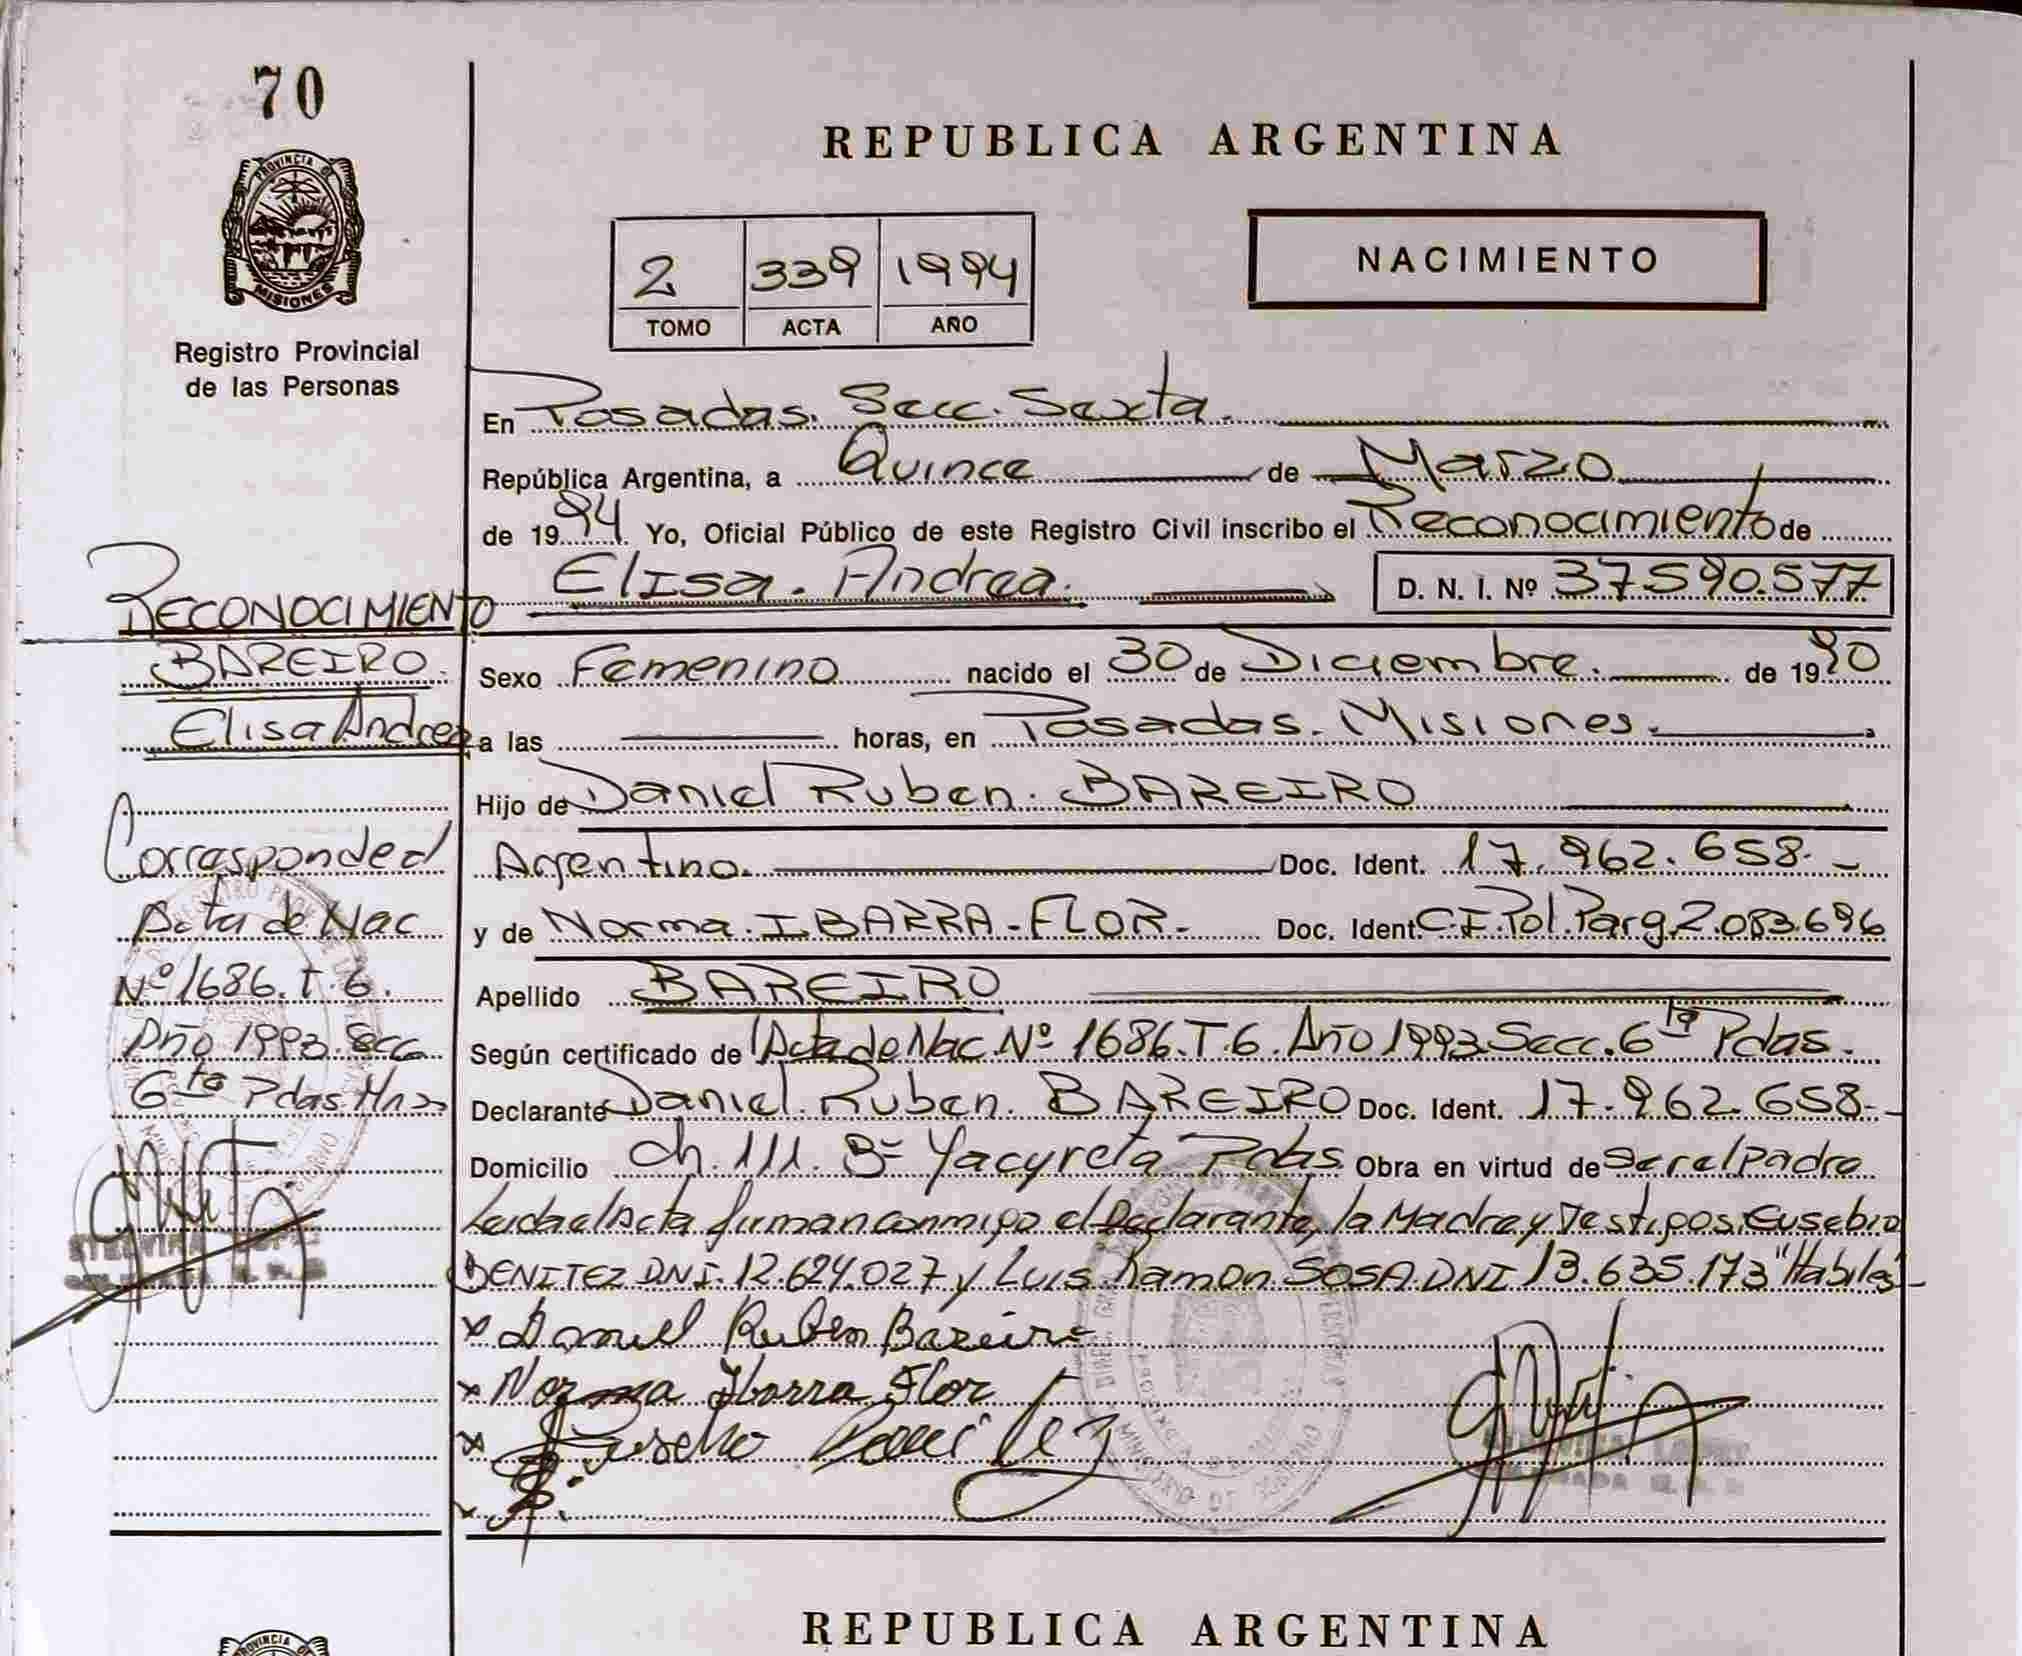 70
PROVINCIA DE
MISIONES
Registro Provincial
de las Personas
REPUBLICA ARGENTINA
2 339 1994
TOMO ACTA AÑO
NACIMIENTO
En Posadas. Secc. Sexta.
República Argentina, a Quince de Marzo
de 1994 Yo, Oficial Público de este Registro Civil inscribo el Reconocimiento de
Elisa. Andrea. D. N. I. Nº 37.590.577
Sexo Femenino nacido el 30 de Diciembre. de 1990
a las horas, en Posadas. Misiones.
Hijo de Daniel Ruben. BAREIRO
Argentino. Doc. Ident. 17.962.658.-
y de Norma. IBARRA-FLOR- Doc. Ident. C.I.Pol.Parg.2.083.696
Apellido BAREIRO
Según certificado de Acta de Nac. Nº 1686.T.6. Año 1993 Secc. 6ta Pdas.
Declarante Daniel. Ruben. BAREIRO Doc. Ident. 17.962.658.-
Domicilio ch. 111. Bº Yacyreta Pdas Obra en virtud de ser el padre
Leida el Acta firman conmigo el Declarante, la Madre y Testigos: Eusebio
BENITEZ DNI. 12.624.027 y Luis Ramon SOSA. DNI 13.635.173 "Habiles"-
x Daniel Ruben Bareiro
x Norma Ibarra Flor
x Eusebio Benitez
x
RECONOCIMIENTO
BAREIRO.
Elisa Andrea
Corresponde al
Acta de Nac
Nº 1686.T.6.
Año 1993. Secc
6ta Pdas. Mnes
REPUBLICA ARGENTINA
PROVINCIA DE